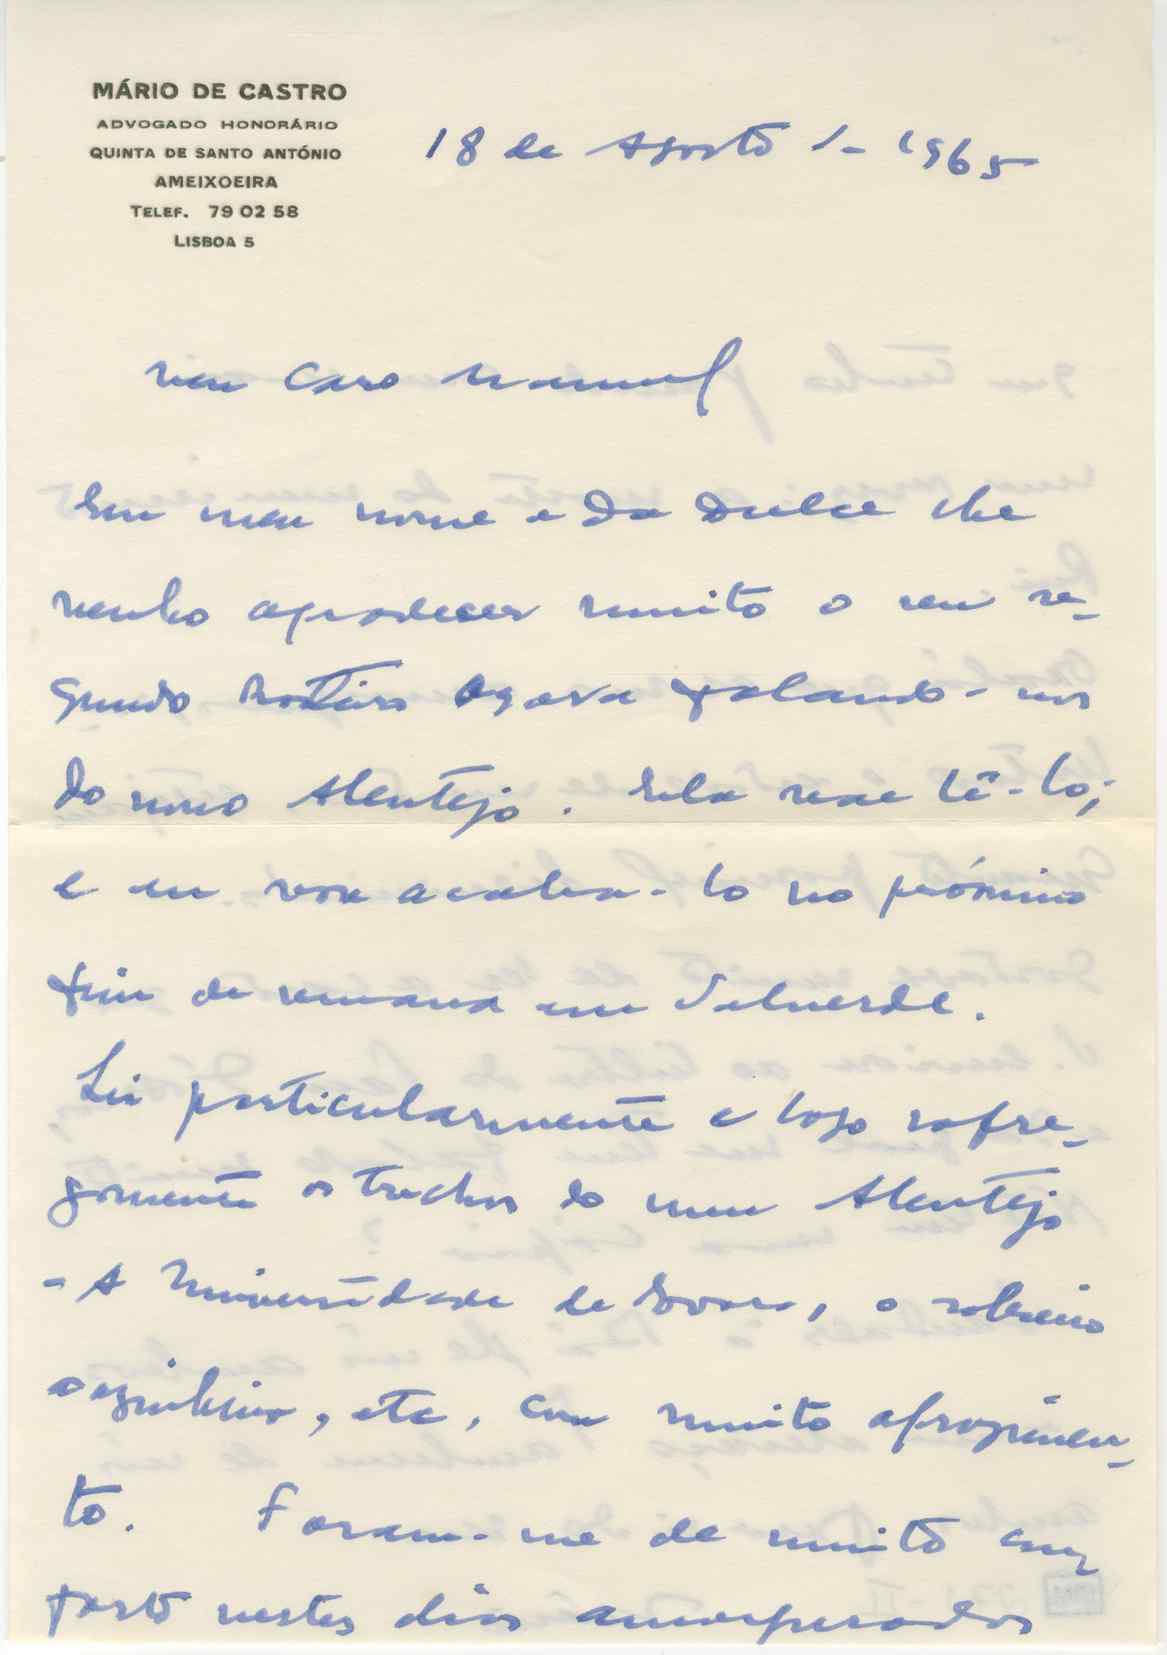 MÁRIO DE CASTRO
ADVOGADO HONORÁRIO
QUINTA DE SANTO ANTÓNIO
AMEIXOEIRA
TELEF. 79 02 58
LISBOA 5
18 de Agosto 1965
Meu caro Manuel
Em meu nome e da Dulce lhe
venho agradecer muito o seu se-
gundo Roteiro agora falando-nos
do nosso Alentejo. Ela vae lê-lo;
e eu vou acaba-lo no próximo
fim de semana em Valverde.
Li particularmente e logo sofre-
gamente os trechos do meu Alentejo
- A Universidade de Evora, o sobreiro
o azinheiro, etc, com muito aprazimen-
to. Foram-me de muito con
forto nestes dias